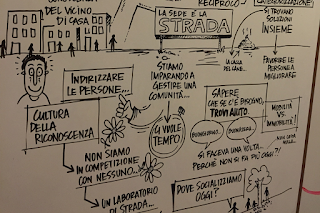 DEL VICINO
DI CASA
RECIPROCO
LA SEDE È LA
STRADA
SI TROVANO
SOLUZIONI
INSIEME
INDIRIZZARE
LE PERSONE...
STIAMO
IMPARANDO A
GESTIRE UNA
COMUNITÀ...
FAVORIRE LE
PERSONE A
MIGLIORARE
SAPERE
CHE SE C'È BISOGNO,
TROVI AIUTO.
MOBILITÀ
VS.
IMMOBILITÀ!
CULTURA
DELLA
RICONOSCENZA
CI VUOLE
TEMPO!
BUONGIORNO...
BUONASERA...
SI FACEVA UNA VOLTA...
PERCHÉ NON SI FA PIÙ OGGI?!
NON SIAMO
IN COMPETIZIONE
CON NESSUNO...
UN LABORATORIO
DI STRADA...
DOVE SOCIALIZZIAMO
OGGI?